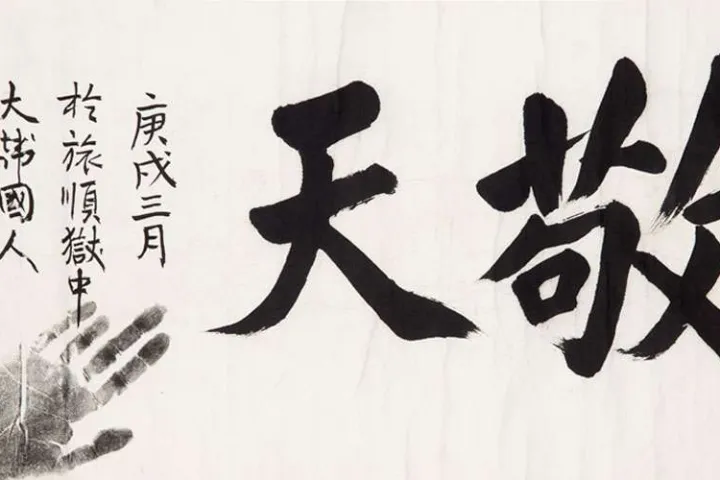 敬天
庚戌三月
於旅順獄中
大韓國人